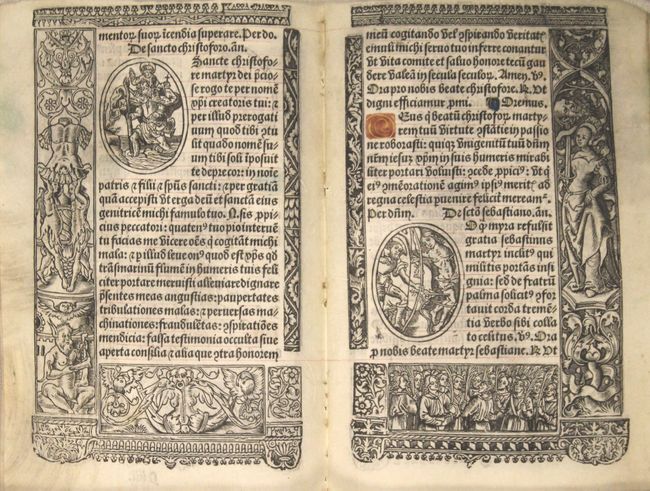 mentorꝝ suoꝝ ĩcendia superare. Per do.
De sancto christoforo. añ.
Sancte christofo-
re martyr dei p̄cio-
se rogo te per nomē
xp̄i creatoris tui: ⁊
per illud p̄rogati
uum quod tibi ꝯtu
lit quādo nomē su-
um tibi soli īposuit
te deprecor: in noīe
patris ⁊ filii ⁊ sp̄us sancti: ⁊ per gratiā
quā accepisti ut erga deū ⁊ sanctā eius
genitricē michi famulo tuo. N. sis ꝓpi
cius peccatori: quatenꝰ tuo pio interuē
tu facias me vīcere oēs q̄ cogitāt michi
mala: ⁊ ꝑ illud leue onꝰ quod est xp̄s qđ
trāsmarinū flumē in humeris tuis feli
citer portare meruisti alleuiare dignare
p̄sentes meas angustias: paupertates
tribulationes malas: ⁊ peruersas ma
chinationes: fraudulētas: ꝯspirationes
mendacia: falsa testimonia occulta siue
aperta consilia ⁊ alia que ꝯtra honorem
meū cogitando vel ꝯspirando veritate
inimici michi seruo tuo inferre conantur
ut vita comite et saluo honore tecū gau
dere valeā in secula seculoꝝ. Amen. v̄.
Ora pro nobis beate christofore. R. Ut
digni efficiamur ꝓmi. Oremus.
eus q̄ beatū christoforū marty
rem tuū virtute ꝯstātie in passio
ne roborasti: quiqꝫ vnigenitū tuū dn̄m
nem iesuꝫ xp̄m in suis humeris mirabi
liter portari voluisti: ꝯcede ꝓpiciꝰ: ut
q̄ eiꝰ ꝯmemorationē agimꝰ ipsiꝰ meritꝭ ad
regna celestia puenire felicit̄ mereamꝰ.
Per dn̄m. De sctō sebastiano. añ.
O q̄ mira refulsit
gratia sebastianus
martyr inclitꝰ qui
militis portās insi
gnia: sed de fratrū
palma solicitꝰ ꝯfor
tauit corda tremē-
tia verbo sibi colla
to celitus. v̄. Ora
ꝓ nobis beate martyr sebastiane. R. Ut